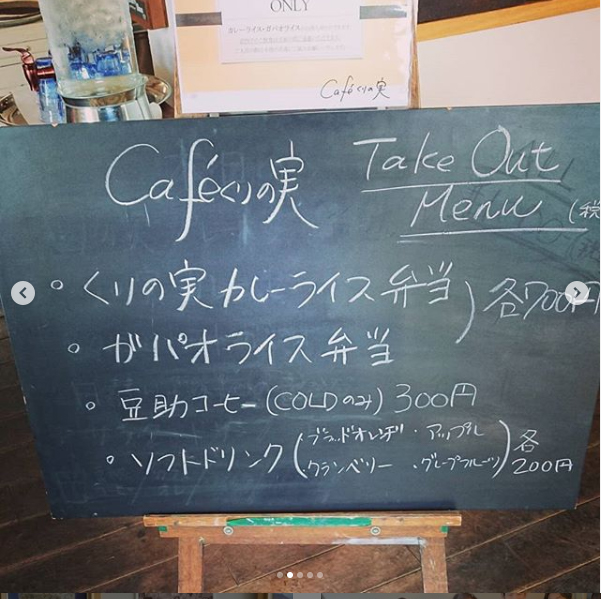 ONLY
カレーライス・ガパオライス
Caféくりの実
Caféくりの実
Take Out
Menu (税
・くりの実カレーライス弁当
・ガパオライス弁当
) 各700円
・豆助コーヒー(COLDのみ) 300円
・ソフトドリンク(・ブラッドオレンヂ ・アップル
・クランベリー ・グレープフルーツ) 各
200円